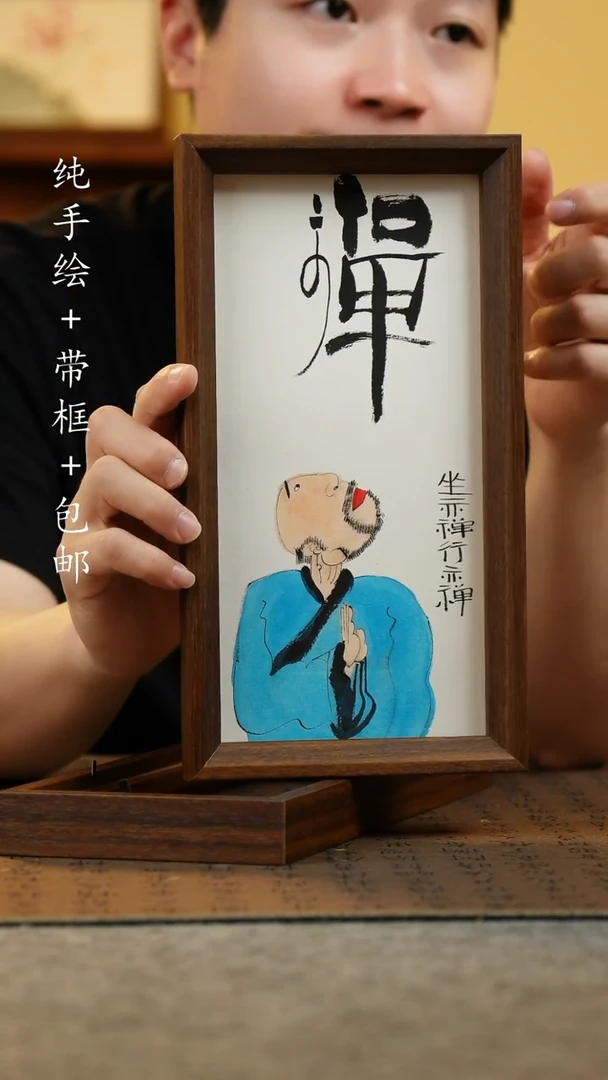 纯手绘+带框+包邮
禪
坐亦禅行亦禅